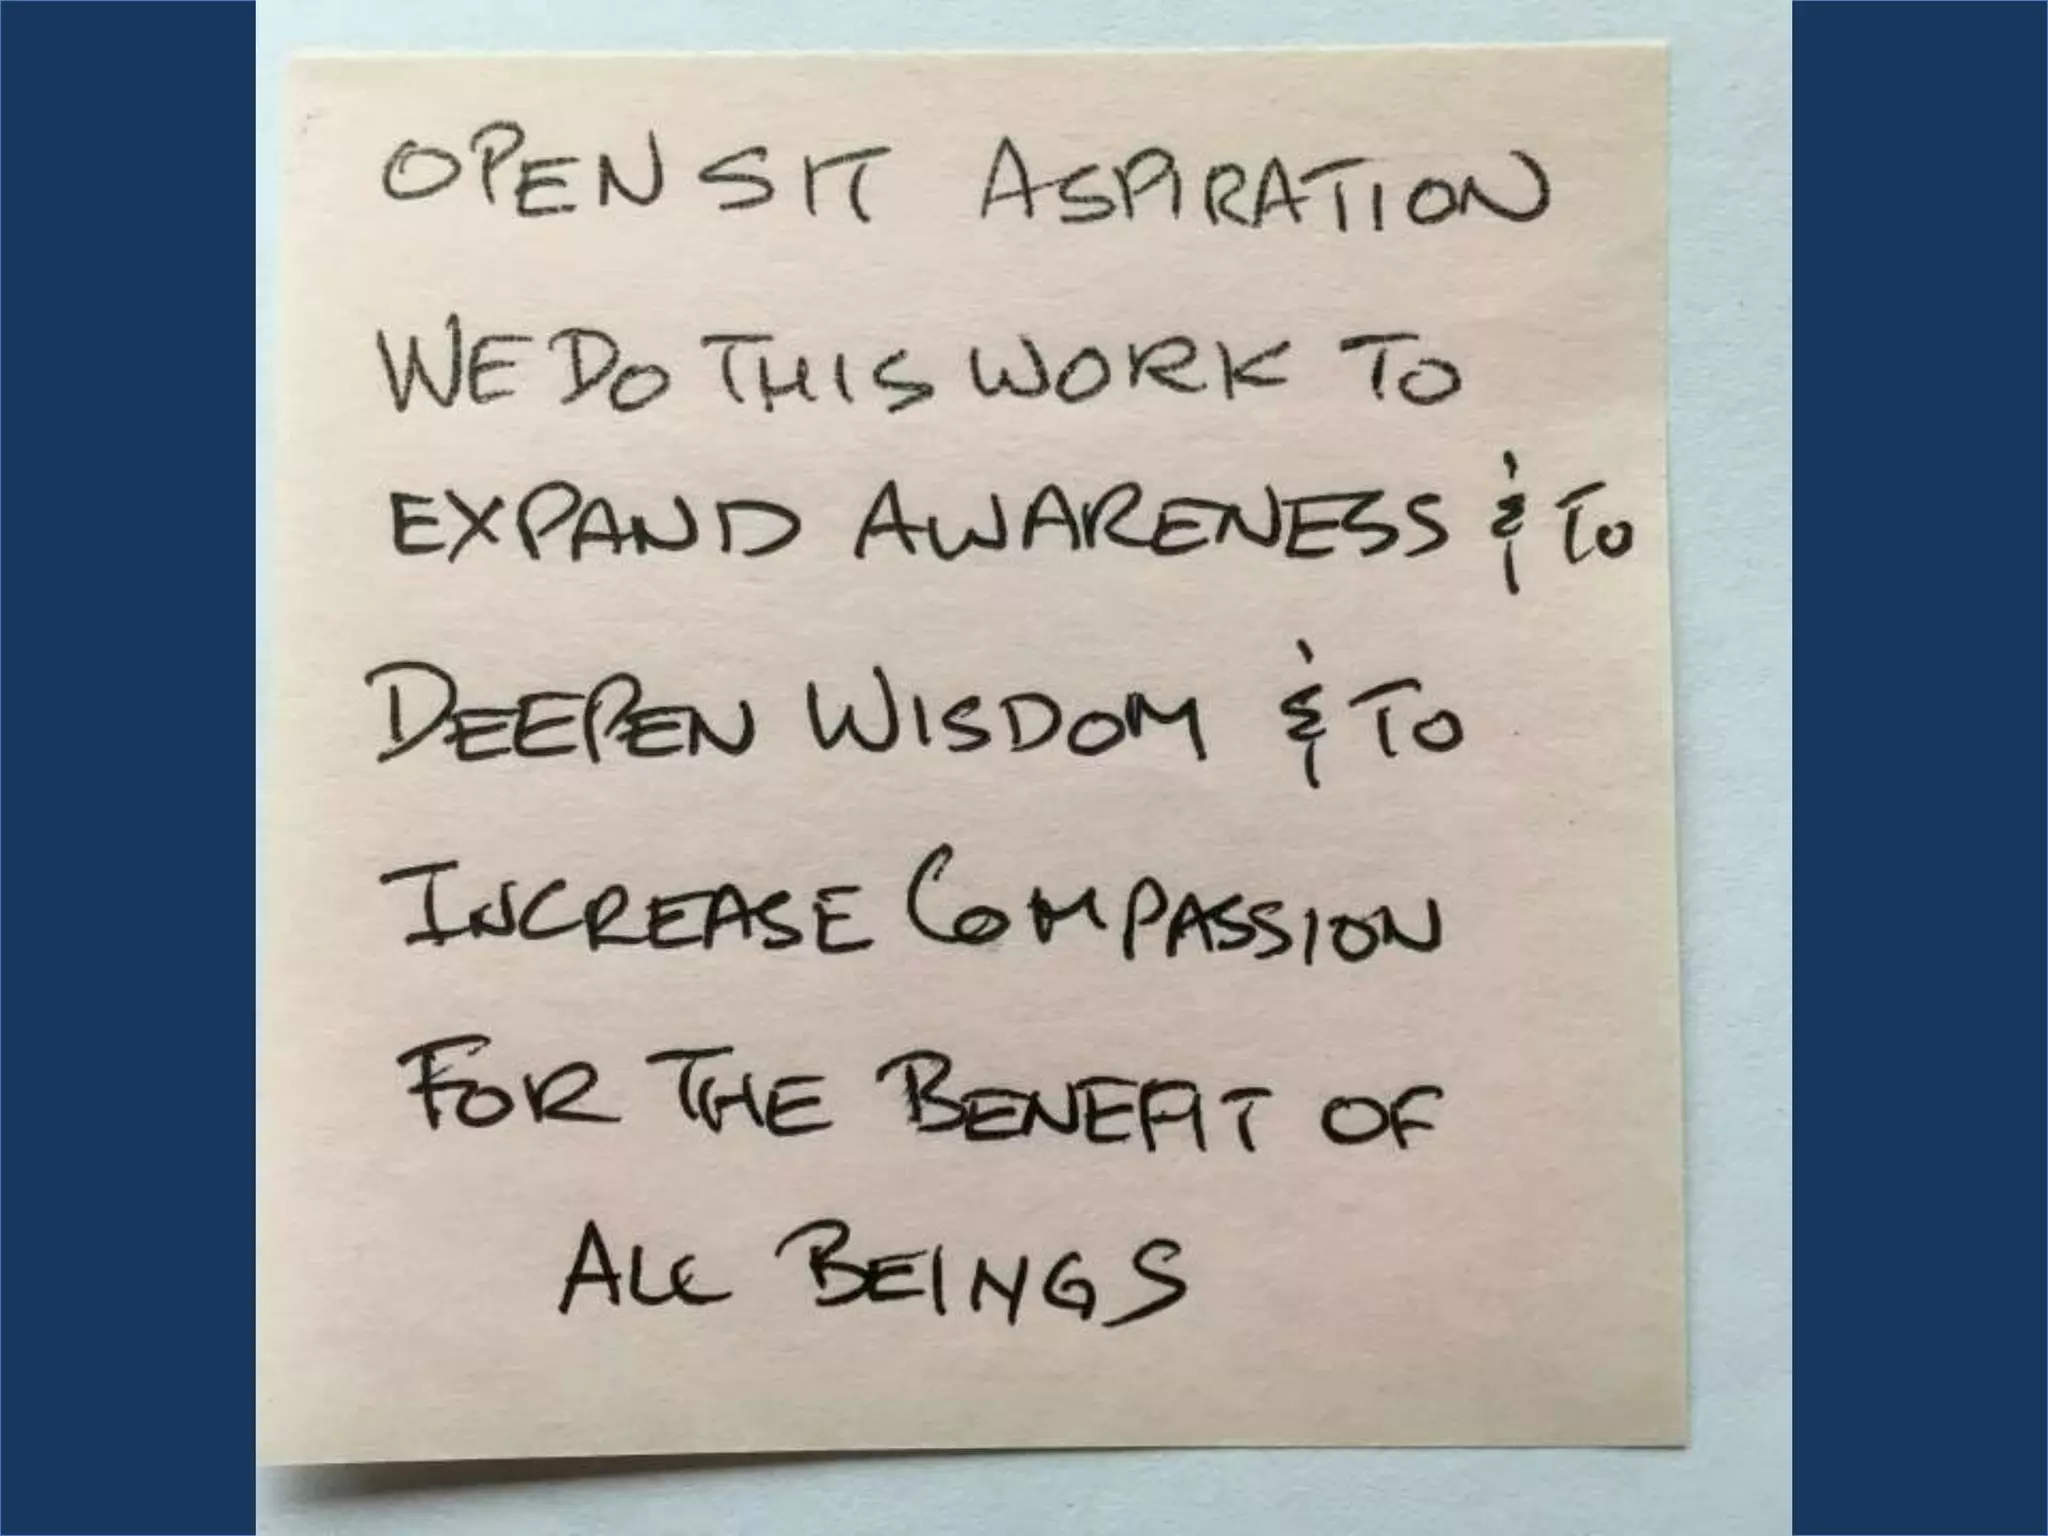 OPEN SIT ASPIRATION
WE DO THIS WORK TO
EXPAND AWARENESS & TO
DEEPEN WISDOM & TO
INCREASE COMPASSION
FOR THE BENEFIT OF
ALL BEINGS